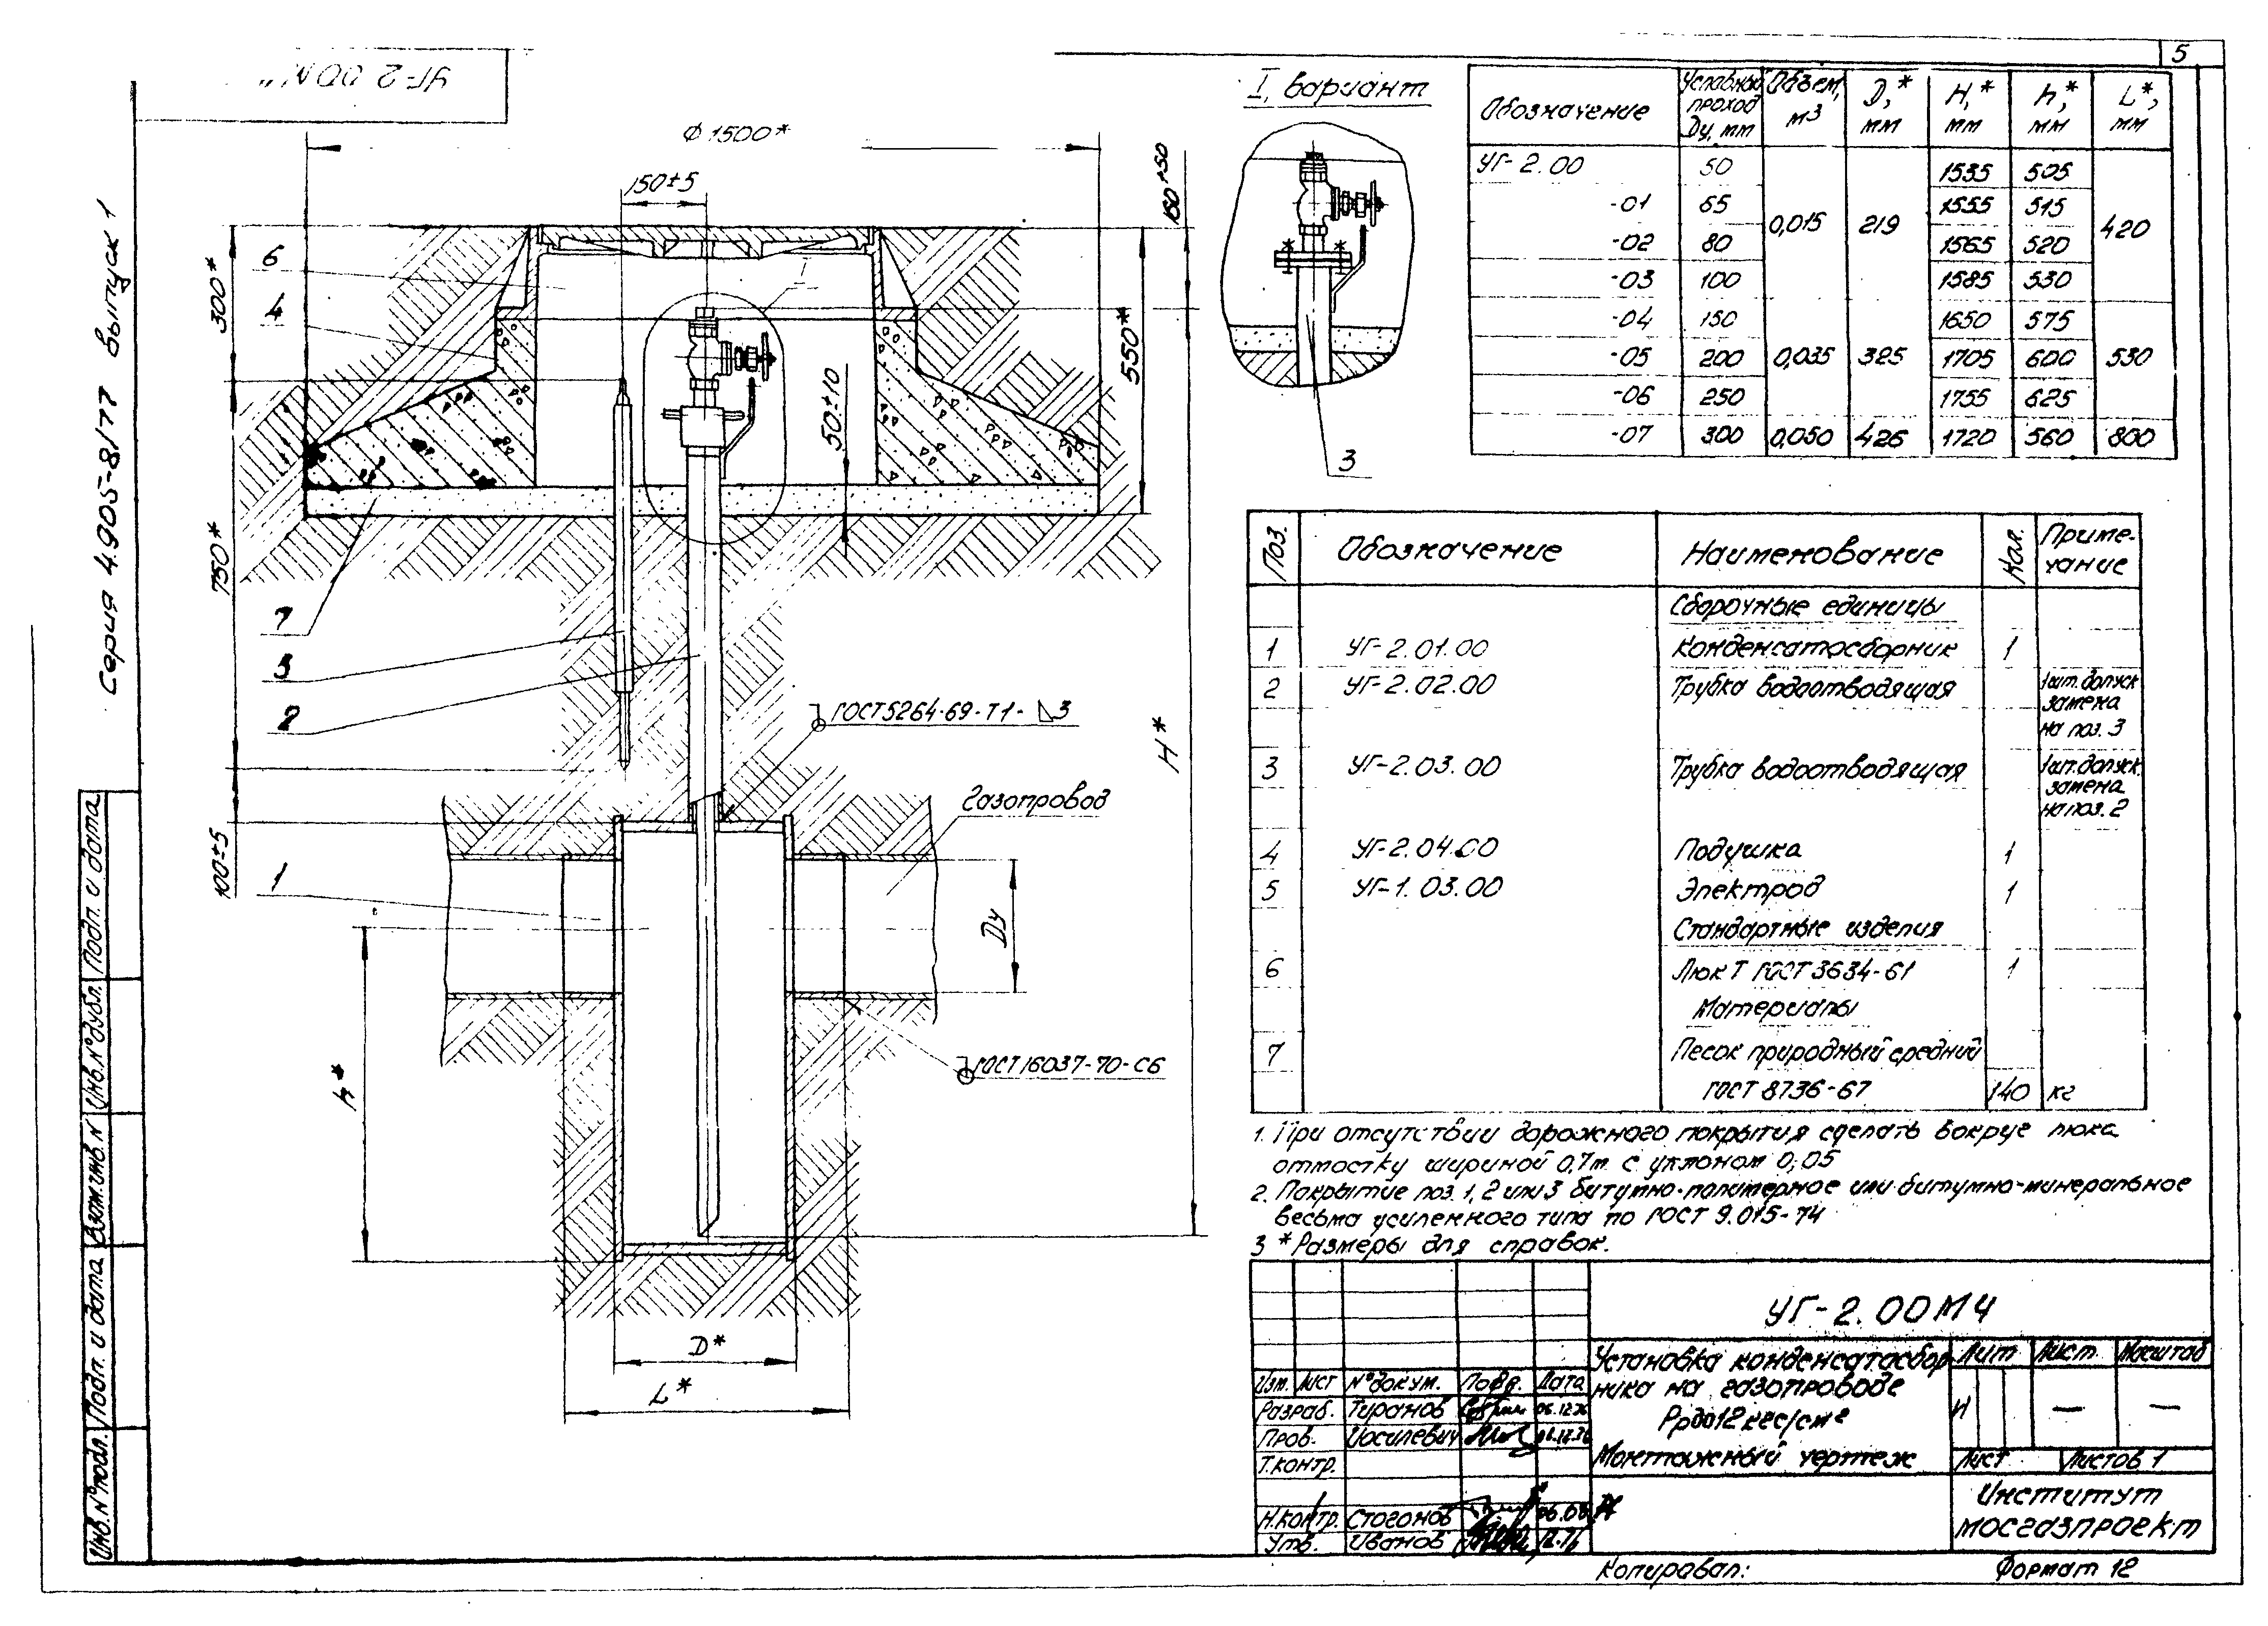 5
Серия 4.905-8/77 выпуск 1
ϕ 1500*
150±5
160±50
300*
550*
50±10
750*
100±5
H*
h*
Dу
D*
L*
6
4
7
5
2
1
I
ГОСТ 5264-69-Т1-⊿3
Газопровод
ГОСТ 16037-70-С6
I, вариант
3
Обозначение | Условный проход Dу, мм | Объем, м³ | D,* мм | H,* мм | h,* мм | L*, мм
УГ-2.00 | 50 | 0,015 | 219 | 1535 | 505 | 420
-01 | 65 | 1555 | 515
-02 | 80 | 1565 | 520
-03 | 100 | 1585 | 530
-04 | 150 | 0,035 | 325 | 1650 | 575 | 530
-05 | 200 | 1705 | 600
-06 | 250 | 1755 | 625
-07 | 300 | 0,050 | 426 | 1720 | 560 | 800
Поз. | Обозначение | Наименование | Кол. | Приме-чание
Сборочные единицы
1 | УГ-2.01.00 | Конденсатосборник | 1
2 | УГ-2.02.00 | Трубка водоотводящая | 1шт. допуск замена на поз. 3
3 | УГ-2.03.00 | Трубка водоотводящая | 1шт. допуск. замена на поз. 2
4 | УГ-2.04.00 | Подушка | 1
5 | УГ-1.03.00 | Электрод | 1
Стандартные изделия
6 | Люк Т ГОСТ 3634-61 | 1
Материалы
7 | Песок природный средний
ГОСТ 8736-67 | 140 | кг
1. При отсутствии дорожного покрытия сделать вокруг люка
отмостку шириной 0,7м с уклоном 0,05
2. Покрытие поз. 1, 2 или 3 битумно-полимерное или битумно-минеральное
весьма усиленного типа по ГОСТ 9.015-74
3 *Размеры для справок.
УГ-2.00МЧ
Установка конденсатосбор-
ника на газопроводе
Рр до 12 кгс/см²
Монтажный чертеж
Лит | Лист | Масштаб
И | — | —
Лист | Листов 1
Институт
мосгазпроект
Изм. | Лист | №докум. | Подп. | Дата
Разраб. | Тиранов | 06.12.76
Пров. | Иосилевич
Т.контр.
Н.контр. | Стогонов
Утв. | Иванов
Копировал:
Формат 12
Подп. и дата
Инв.№дубл.
Взам.инв.N
Подп. и дата
Инв.№подл.